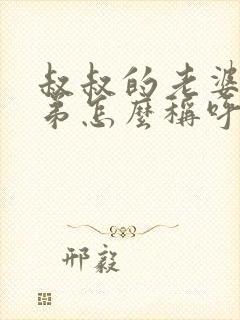 叔叔的老婆
弟怎麼稱呼
邢毅